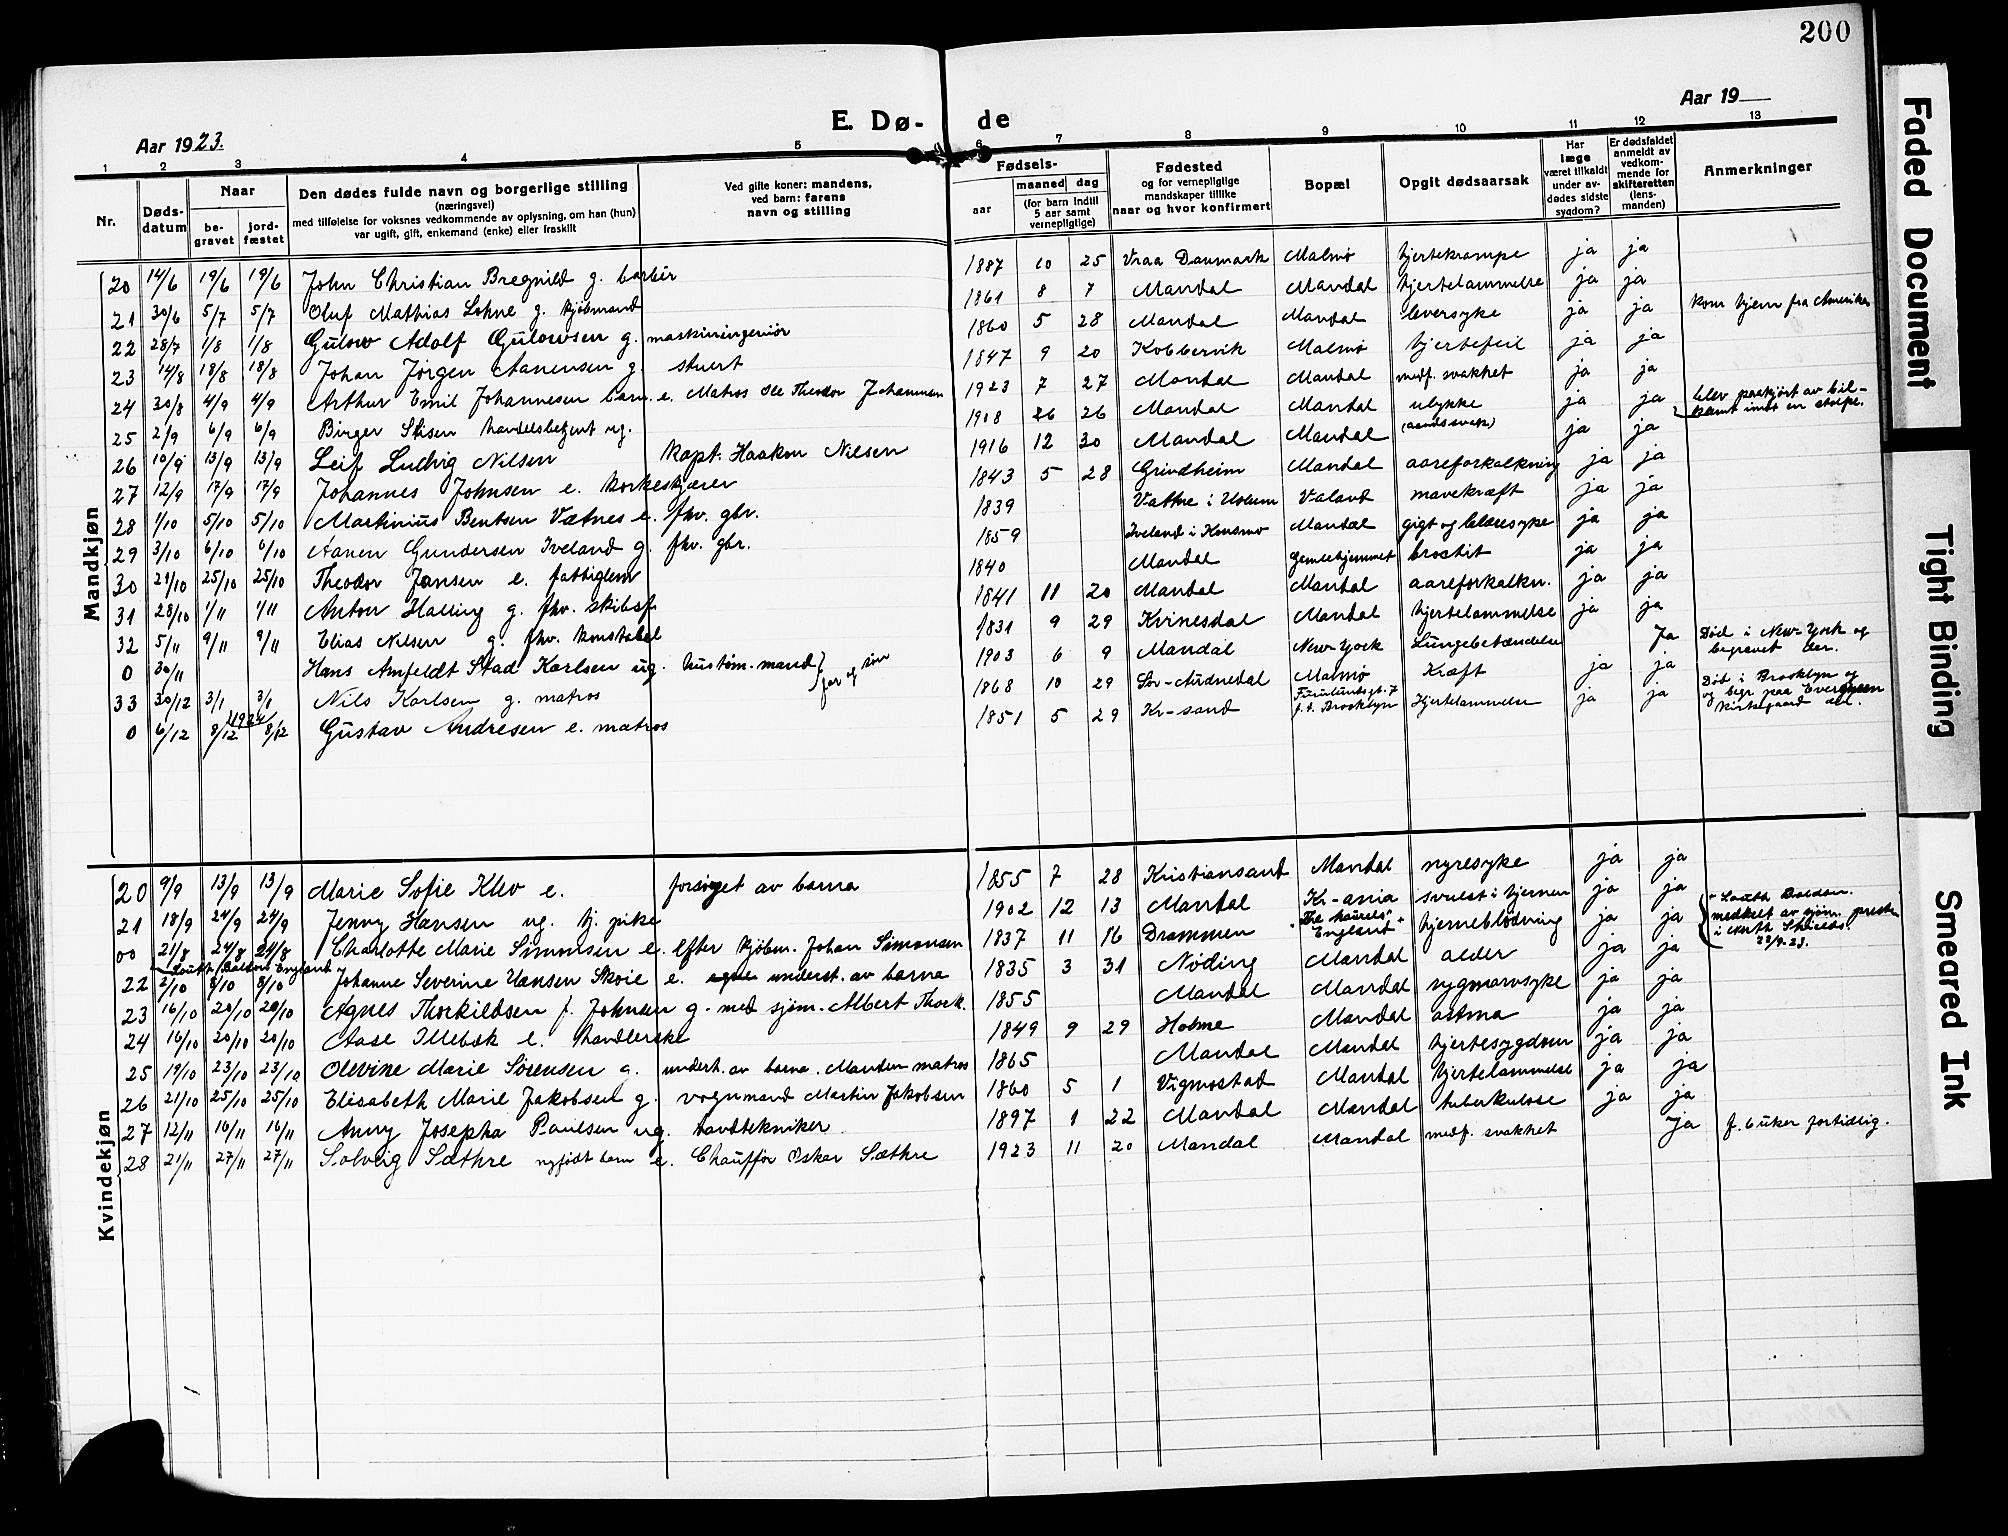 200
Aar 1923.
E. Dø- de
Aar 19
1 2 3 4 5 6 7 8 9 10 11 12 13
Nr.
Døds-datum
Naar
be-gravet
jord-fæstet
Den dødes fulde navn og borgerlige stilling
(næringsvei)
med tilføielse for voksnes vedkommende av oplysning, om han (hun)
var ugift, gift, enkemand (enke) eller fraskilt
Ved gifte koner: mandens,
ved barn: farens
navn og stilling
Fødsels-
aar
maaned dag
(for barn indtil
5 aar samt
vernepligtige)
Fødested
og for vernepligtige
mandskaper tillike
naar og hvor konfirmert
Bopæl
Opgit dødsaarsak
Har
læge
været tilkaldt
under av-
dødes sidste
sygdom?
Er dødsfaldet
anmeldt av
vedkom-
mende for
skifteretten
(lens
manden)
Anmerkninger
Mandkjøn
20 14/6 19/6 19/6 John Christian Bregnild g. barbér 1887 10 25 Vraa Danmark Malmø hjertekrampe ja ja
21 30/6 5/7 5/7 Oluf Mathias Lohne g. kjøbmand 1861 8 7 Mandal Mandal hjertelammelse ja ja
22 28/7 1/8 1/8 Gulow Adolf Gulowsen g. maskiningeniør 1860 5 28 Mandal Mandal leversyke ja ja kom hjem fra Amerika
23 14/8 18/8 18/8 Johan Jørgen Aanensen g. stuert 1847 9 20 Kobbervik Malmø hjertefeil ja ja
24 30/8 4/9 4/9 Arthur Emil Johannesen barn. e. Matros Ole Theodor Johannesen 1923 7 27 Mandal Mandal medf. svakhet ja ja
25 2/9 6/9 6/9 Birger Stisen handelsbetjent ug. 1908 26 26 Mandal Mandal ulykke ja ja blev paakjørt av bil - klemt imot en stolpe.
26 10/9 13/9 13/9 Leif Ludvig Nilsen Kapt. Haakon Nilsen 1916 12 30 Mandal Mandal (aandssvak) ja ja
27 12/9 17/9 17/9 Johannes Johnsen e. korkeskjærer 1843 5 28 Grindheim Mandal aareforkalkning ja ja
28 1/10 5/10 5/10 Martinius Bentsen Vatnes e. fhv. gbr. 1839 Vatne i Holum Valand mavekræft ja ja
29 3/10 6/10 6/10 Aanen Gundersen Iveland g. fhv. gbr. 1859 Iveland i Konsmo Mandal gigt og blæresyke ja ja
30 21/10 25/10 25/10 Theodor Jansen e. fattiglem 1840 Mandal Gamlehjemmet ja ja
31 28/10 1/11 1/11 Anton Halling g. fhv. skibsf. 1841 11 20 Mandal Mandal aareforkalkn. ja ja
32 5/11 9/11 9/11 Elias Nilsen g. fhv. konstabel 1831 9 29 Kvinesdal Mandal hjertelammelse ja ja
0 30/11 Hans Amfeldt Stad Karlsen ug. kustøm. mand 1903 6 9 Mandal New-York Lungebetændelse Ja Død i New-York og begravet der.
33 30/12 3/1 3/1 1924 Nils Karlsen g. matros 1868 10 29 Sør-Audnedal Malmø Kræft ja ja
0 6/12 8/12 8/12 Gustav Andresen e. matros 1851 5 29 Kr-sand f. t. Brooklyn Hjertelammelse ja ja Død i Brooklyn og og begr paa Evergreen kirkegaard der.
Kvindekjøn
20 9/9 13/9 13/9 Marie Sofie Klev e. forsørget av barna 1855 7 28 Kristiansand Mandal nyresyke ja ja
21 18/9 24/9 24/9 Jenny Hansen ug. tj. pike 1902 12 13 Mandal Kr-ania svulst i hjernen ja ja
00 21/8 24/8 24/8 Charlotte Marie Simonsen e. efter kjøbm. Johan Simonsen 1837 11 16 Drammen England hjerneblødning ja ja meddelt av sjøm. prest i North Shields 29/9.23.
South Boldon England
22 2/10 8/10 8/10 Johanne Severine Hansen Skoie e. underst. av barna 1835 3 31 Nøding Mandal alder ja ja
23 16/10 20/10 20/10 Agnes Thorkildsen f. Johnsen g. med sjøm. Albert Thork. 1855 Mandal Mandal rygmarvsyke ja ja
24 16/10 20/10 20/10 Aase Illebæk e. handlerske 1849 9 29 Holme Mandal astma ja ja
25 19/10 23/10 23/10 Olevine Marie Sørensen g. underh. av barna. Manden matros 1865 Mandal Mandal hjertesygdom ja ja
26 21/10 25/10 25/10 Elisabeth Marie Jakobsen g. vognmand Martin Jakobsen 1860 5 1 Vigmostad Mandal hjertelammelse ja ja
27 12/11 16/11 16/11 Anny Josepha Paulsen ug. tandtekniker 1897 1 22 Mandal Mandal tuberkulose ja ja
28 21/11 27/11 27/11 Solveig Sæthre nyfødt barn e. Chauffør Oskar Sæthre 1923 11 20 Mandal Mandal medf. svakhet Ja f. 6 uker fortidlig.
Faded Document
Tight Binding
Smeared Ink